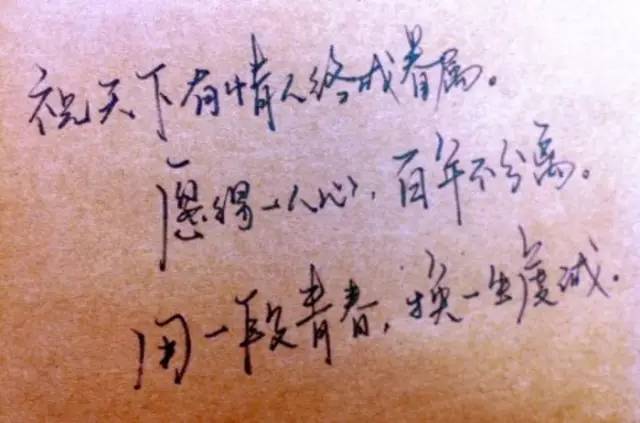 祝天下有情人终成眷属。
愿得一人心，百年不分离。
用一段青春，换一生虔诚．